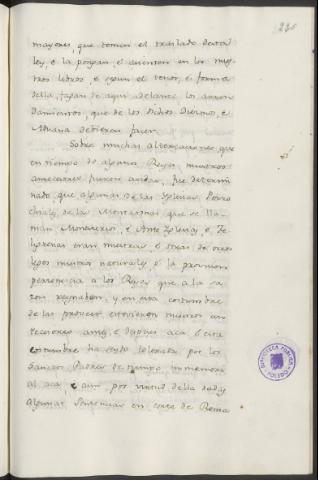 230
mayores, que tomen el traslado desta
ley, e la pongan, e asienten en los nues
tros libros e segun el tenor, e forma
della, fagan de aqui adelante los arren
damientos, que de los dichos Diezmos, e
Aduana debieren facer.
Sobre muchas altercaciones, que
en tiempo de algunos Reyes nuestros
antecesores fueron avidas, fue determi
nado, que algunas de las Yglesias Parro
chiales de las Montañas que se lla
man Monasterios, e Ante Yglesias, e Fe
ligresias eran nuestras, e otras de otros
legos nuestros naturales, e la provision
pertenencia a los Reyes que a la sa
zon reynaban, y en esta costumbre
de las proveer estovieron nuestros an
tecesores antes, e despues aca e esta
costumbre ha seydo tolerada por los
Sanctos Padres de tiempo inmemori
al aca, e aun por virtud della dadas
algunas Sentencias en corte de Roma
BIBLIOTECA PUBLICA
TOLEDO